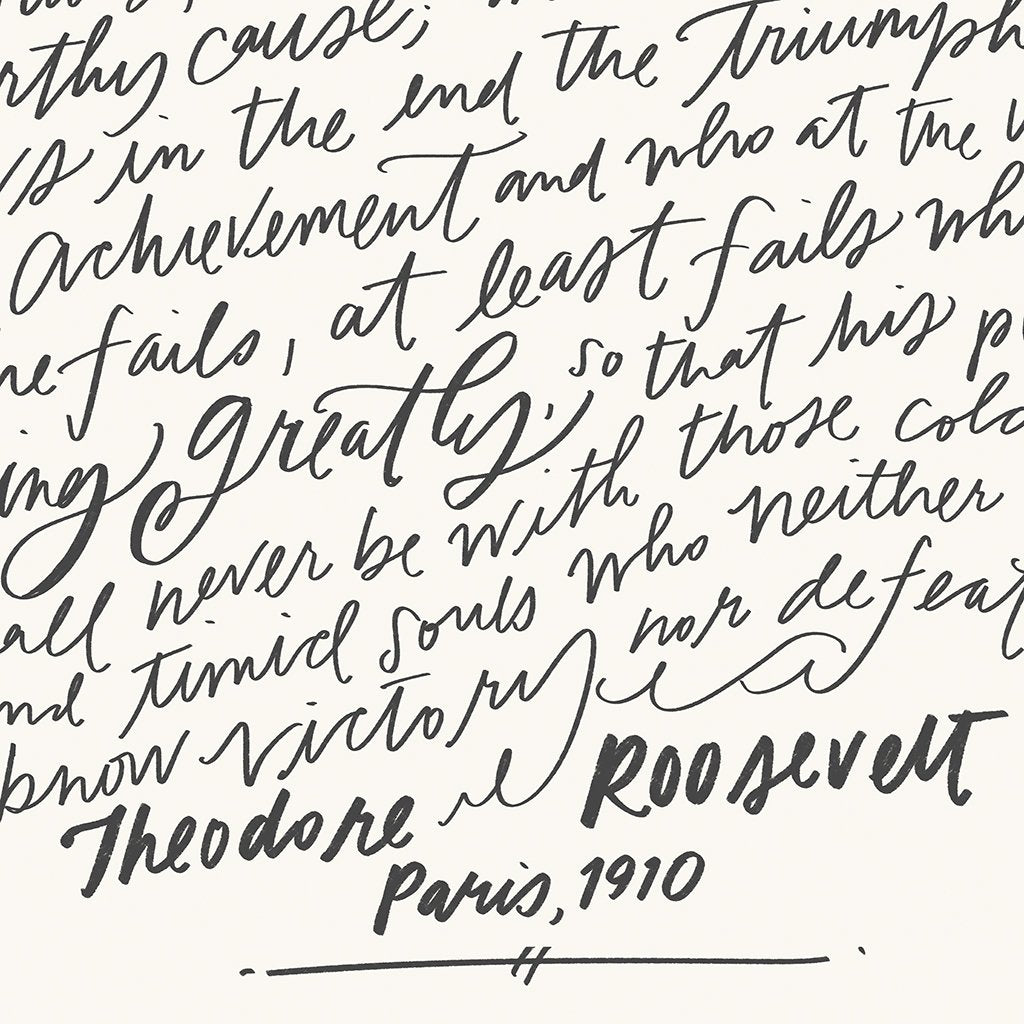 rthy cause;
s in the end the triumph
achievement and who at the
he fails, at least fails wh
ing greatly, so that his p
all never be with those cold
nd timid souls who neither
know victory nor defeat
Theodore Roosevelt
Paris, 1910